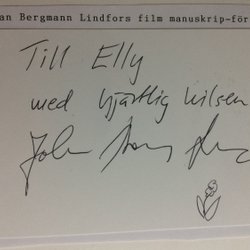 an Bergmann Lindfors film manuskrip-för
Till Elly
med hjärtlig hilsen